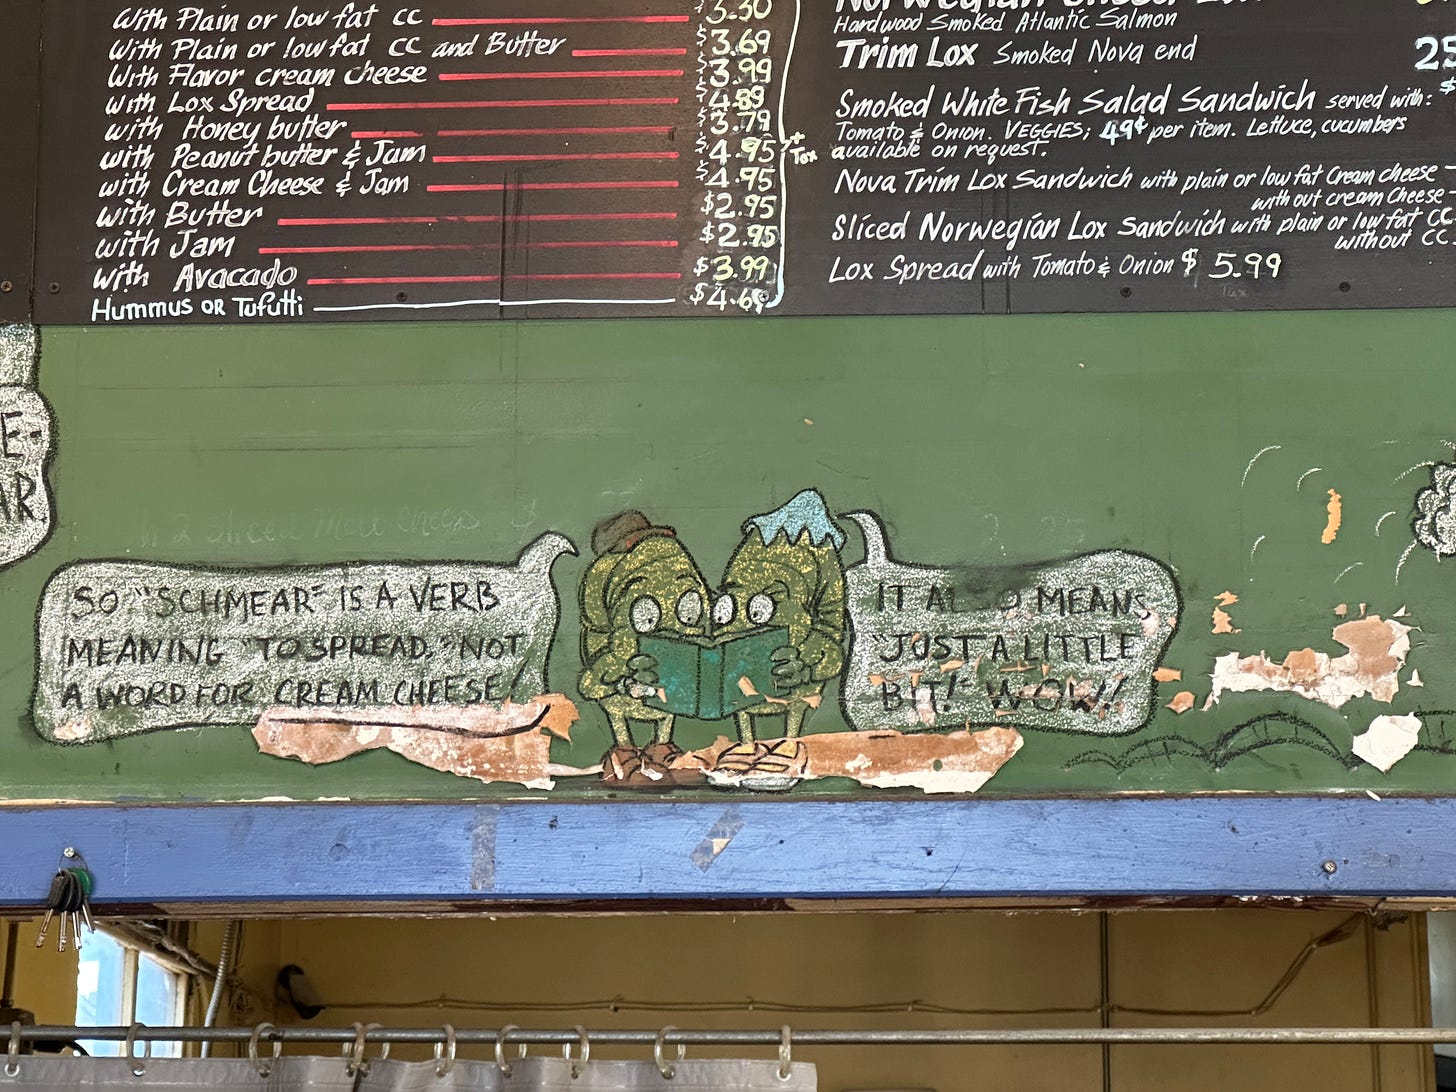 with Plain or low fat CC
$3.69
with Plain or low fat CC and Butter
$3.99
with Flavor cream cheese
$4.89
with Lox Spread
$3.79
with Honey butter
$4.95
with Peanut butter & Jam
$4.95
with Cream Cheese & Jam
$2.95
with Butter
$2.95
with Jam
$3.99
with Avacado
Hummus OR Tufutti
+ Tax
Hardwood Smoked Atlantic Salmon
Trim Lox Smoked Nova end
Smoked White Fish Salad Sandwich served with:
Tomato & Onion. VEGGIES; 49¢ per item. Lettuce, cucumbers
available on request.
Nova Trim Lox Sandwich with plain or low fat Cream cheese
without cream Cheese
Sliced Norwegian Lox Sandwich with plain or low fat CC
without CC
Lox Spread with Tomato & Onion $5.99
SO "SCHMEAR" IS A VERB
MEANING "TO SPREAD," NOT
A WORD FOR CREAM CHEESE!
IT ALSO MEANS
"JUST A LITTLE
BIT!" WOW!